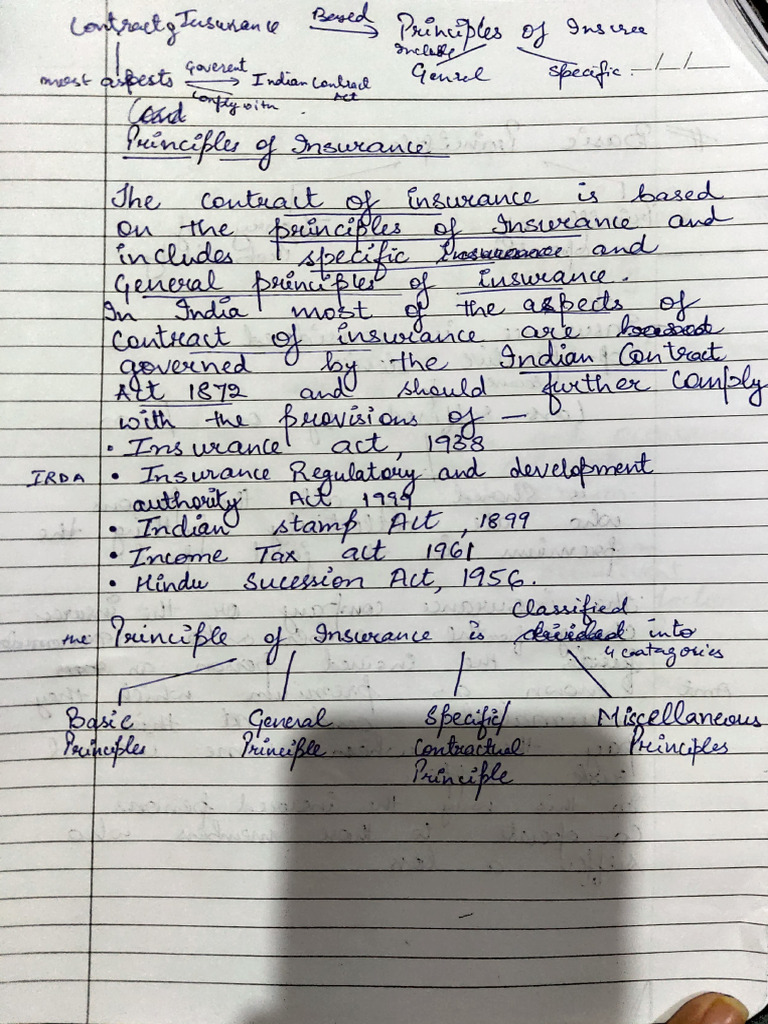 Contract of Insurance Based Principles of Insree
include
most aspests Goverent Indian Contract Act Genrel specific. __/__/__
Comply with
Principles of Insurance
The contract of insurance is based
on the principles of Insurance and
includes specific Insurance and
General principles of insurance.
In India most of the aspects of
Contract of insurance are based
governed by the Indian Contract
Act 1872 and should further comply
with the provisions of —
• Insurance act, 1938
IRDA • Insurance Regulatory and development
authority Act 1999
• Indian stamp Act, 1899
• Income Tax act 1961
• Hindu Sucession Act, 1956.
classified
the Principle of Insurance is divided into
4 catagories
Basic General Specific/ Miscellaneous
Principles Principle Contractual Principles
Principle